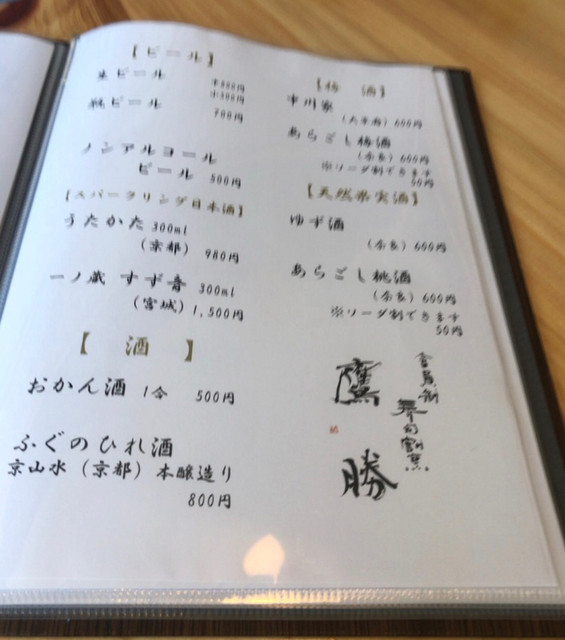 【ビール】
生ビール
中600円
小300円
瓶ビール
700円
ノンアルコール
ビール 500円
【スパークリング日本酒】
うたかた 300ml
(京都) 980円
一ノ蔵 すず音 300ml
(宮城) 1,500円
【 酒 】
おかん酒 1合 500円
ふぐのひれ酒
京山水(京都)本醸造り
800円
【梅 酒】
中川家
600円
あらごし梅酒
(奈良) 600円
※ソーダ割できます
50円
【天然果実酒】
ゆず酒
(奈良) 600円
あらごし桃酒
(奈良) 600円
※ソーダ割できます
50円
会員制
寿司割烹
鷹勝